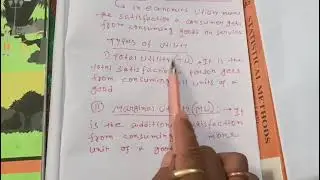 In economics Utility means
the satisfaction a consumer gets
from consuming goods or services
Types of Utility
i) Total Utility (TU) → It is the
total satisfaction a person gets
from consuming all units of a
good
(ii) Marginal Utility (MU): → It
is the additional satisfaction
from consuming one more
unit of a good
STATISTICAL METHODS